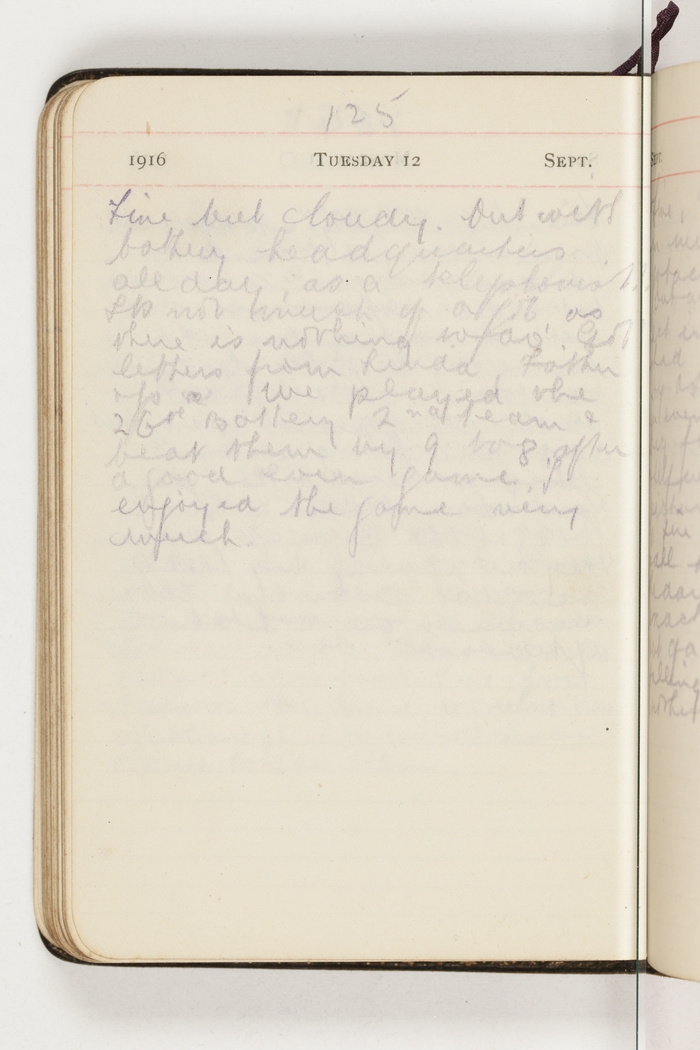 125
1916 TUESDAY 12 SEPT.
Fine but cloudy. Out with
battery headquarters
all day, as a telephonist.
Its not much of a job as
there is nothing to do. Got
letters from Linda Father
We played the
26th Battery 2nd team &
beat them by 9 to 8, after
a good even game, I
enjoyed the game very
much.